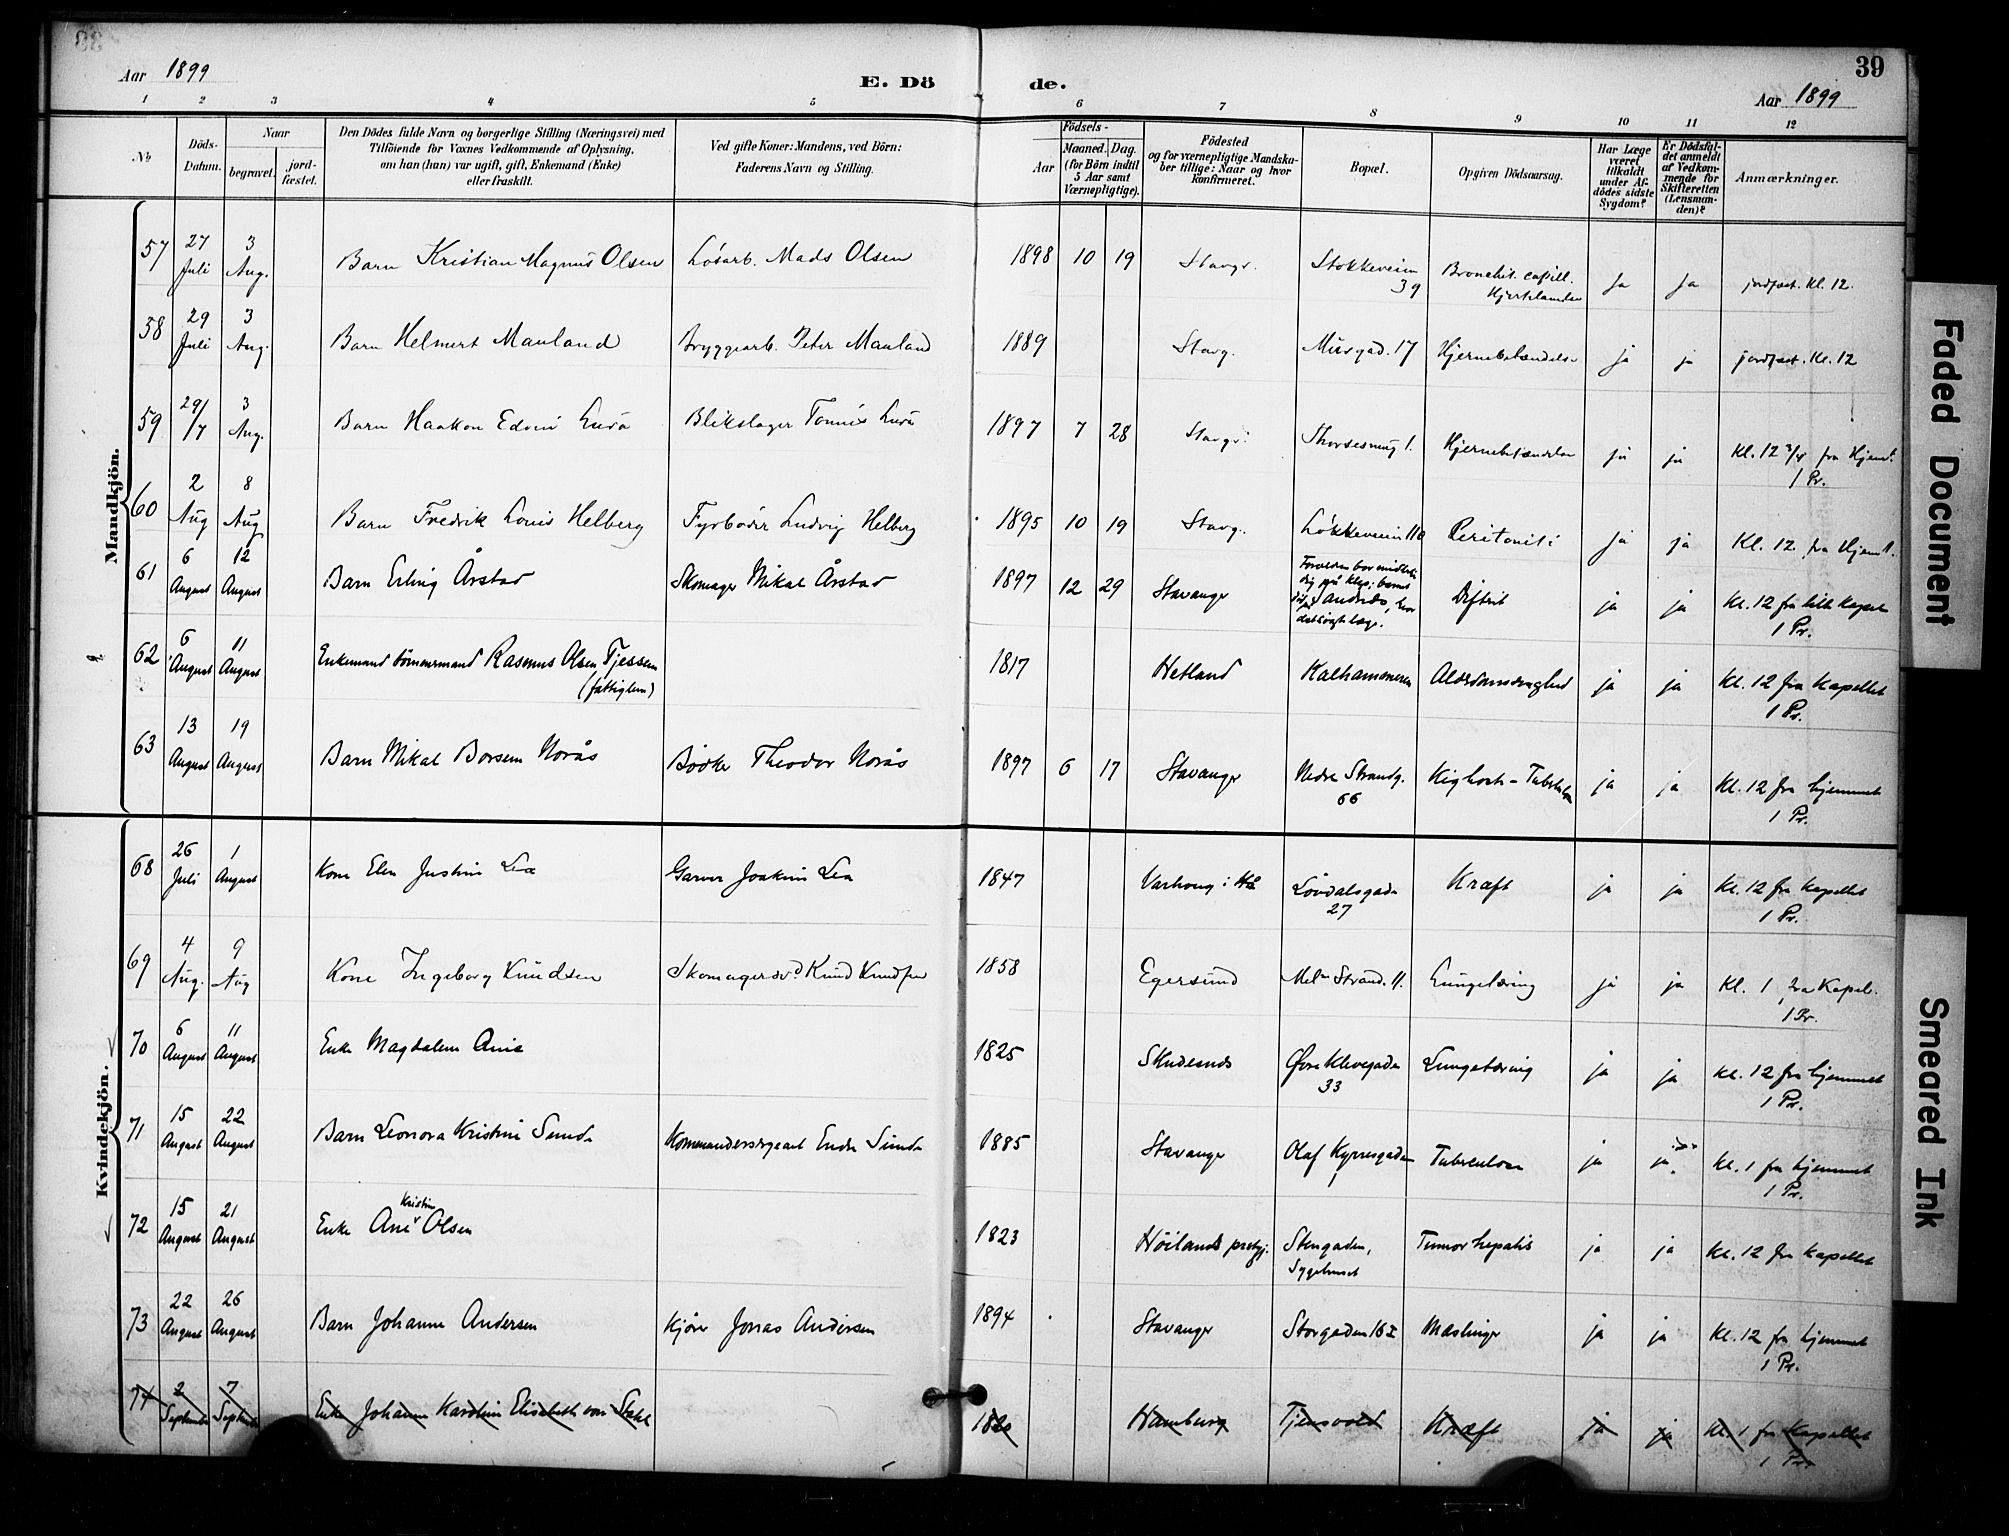 39
Aar 1899
E. Dö
de.
Aar 1899
1 2 3 4 5 6 7 8 9 10 11 12
No
Döds-
Datum.
Naar
begravet.
jord-
fæstet.
Den Dödes fulde Navn og borgerlige Stilling (Næringsvei) med
Tilföiende for Voxnes Vedkommende af Oplysning,
om han (hun) var ugift, gift, Enkemand (Enke)
eller fraskilt.
Ved gifte Koner: Mandens, ved Börn:
Faderens Navn og Stilling.
Födsels-
Aar
Maaned.
Dag.
(for Börn indtil
5 Aar samt
Værnepligtige).
Födested
og for værnepligtige Mandska-
ber tillige: Naar og hvor
konfirmeret.
Bopæl.
Opgiven Dödsaarsag.
Har Læge
været
tilkaldt
under Af-
dödes sidste
Sygdom?
Er Dödsfal-
det anmeldt
af Vedkom-
mende for
Skifteretten
(Lensman-
den)?
Anmærkninger.
Mandkjön.
57 27 Juli 3 Aug. Barn Kristian Magnus Olsen Løsarb. Mads Olsen 1898 10 19 Stavgr. 39 Bronchit. capill. ja ja jordfæst. Kl. 12.
58 29 Juli 3 Aug. Barn Helmert Mauland Bryggearb. Peter Mauland 1889 Stavg. 17 Hjernebetændelse ja ja jordfæst. Kl. 12
59 29/7 3 Aug. Barn Haakon Edvin Blikslager 1897 7 28 Stavgr. Hjernebetændelse ja ja Kl. 12 3/4 fra Hjemt.
1 Pr.
60 2 Aug 8 Aug Barn Fredrik Louis Helberg Fyrbøder Ludvig Helberg 1895 10 19 Stavg. Løkkeveien 110 Peritonit ja ja Kl. 12 fra Hjemt.
61 6 August 12 August Barn Erling Årstad Skomager Mikal Årstad 1897 12 29 Stavanger Sandnes, hvor Difterit ja ja Kl. 12 fra lille Kapel
1 Pr.
62 6 August 11 August Enkemand tømmermand Rasmus Olsen Tjessem
(fattiglem) 1817 Hetland Kalhammeren Alderdomssvaghed ja ja Kl. 12 fra Kapellet
1 Pr.
63 13 August 19 August Barn Mikal Borsem Norås Bødker Theodor Norås 1897 6 17 Stavanger Nedre Strandg.
66 Kighoste - ja ja Kl. 12 fra hjemmet
1 Pr.
Kvindekjön.
68 26 Juli 1 August Kone Elen Justine Lea Garver Joakim Lea 1847 Varhoug i Hå Løvdalsgade
27 Kræft ja ja Kl. 12 fra Kapellet
1 Pr.
69 4 Aug. 9 Aug Kone Ingeborg Knudsen Knud Knudsen 1858 Egersund Mel. Strand. 11. Lungetæring ja ja Kl. 1 fra Kapel.
1 Pr.
70 6 August 11 August Enke Magdalene 1825 Skudesnes Øvre Klevegade
33 Lungetæring ja ja Kl. 12 fra hjemmet
1 Pr.
71 15 August 22 August Barn Leonora Kristine Sunde Kommandersergeant Endre Sunde 1885 Stavanger Olaf Kyrresgaden Tuberculose ja ja Kl. 1 fra hjemmet
1 Pr.
72 15 August 21 August Enke Ane Kristine Olsen 1823 Høilands prstgj. Stengaden,
Sygehuset Tumor hepatis ja ja Kl. 12 fra Kapellet
73 22 August 26 August Barn Johanne Andersen Kjører Jonas Andersen 1894 Stavanger Storgaden 16 I Mæslinger ja ja Kl. 12 fra hjemmet
1 Pr.
74 2 September 7 September Enke Johanne Karoline Elisabeth von 1820 Hamburg Tjensvold Kræft ja ja Kl. 1 fra Kapellet
1 Pr.
Faded Document
Smeared Ink